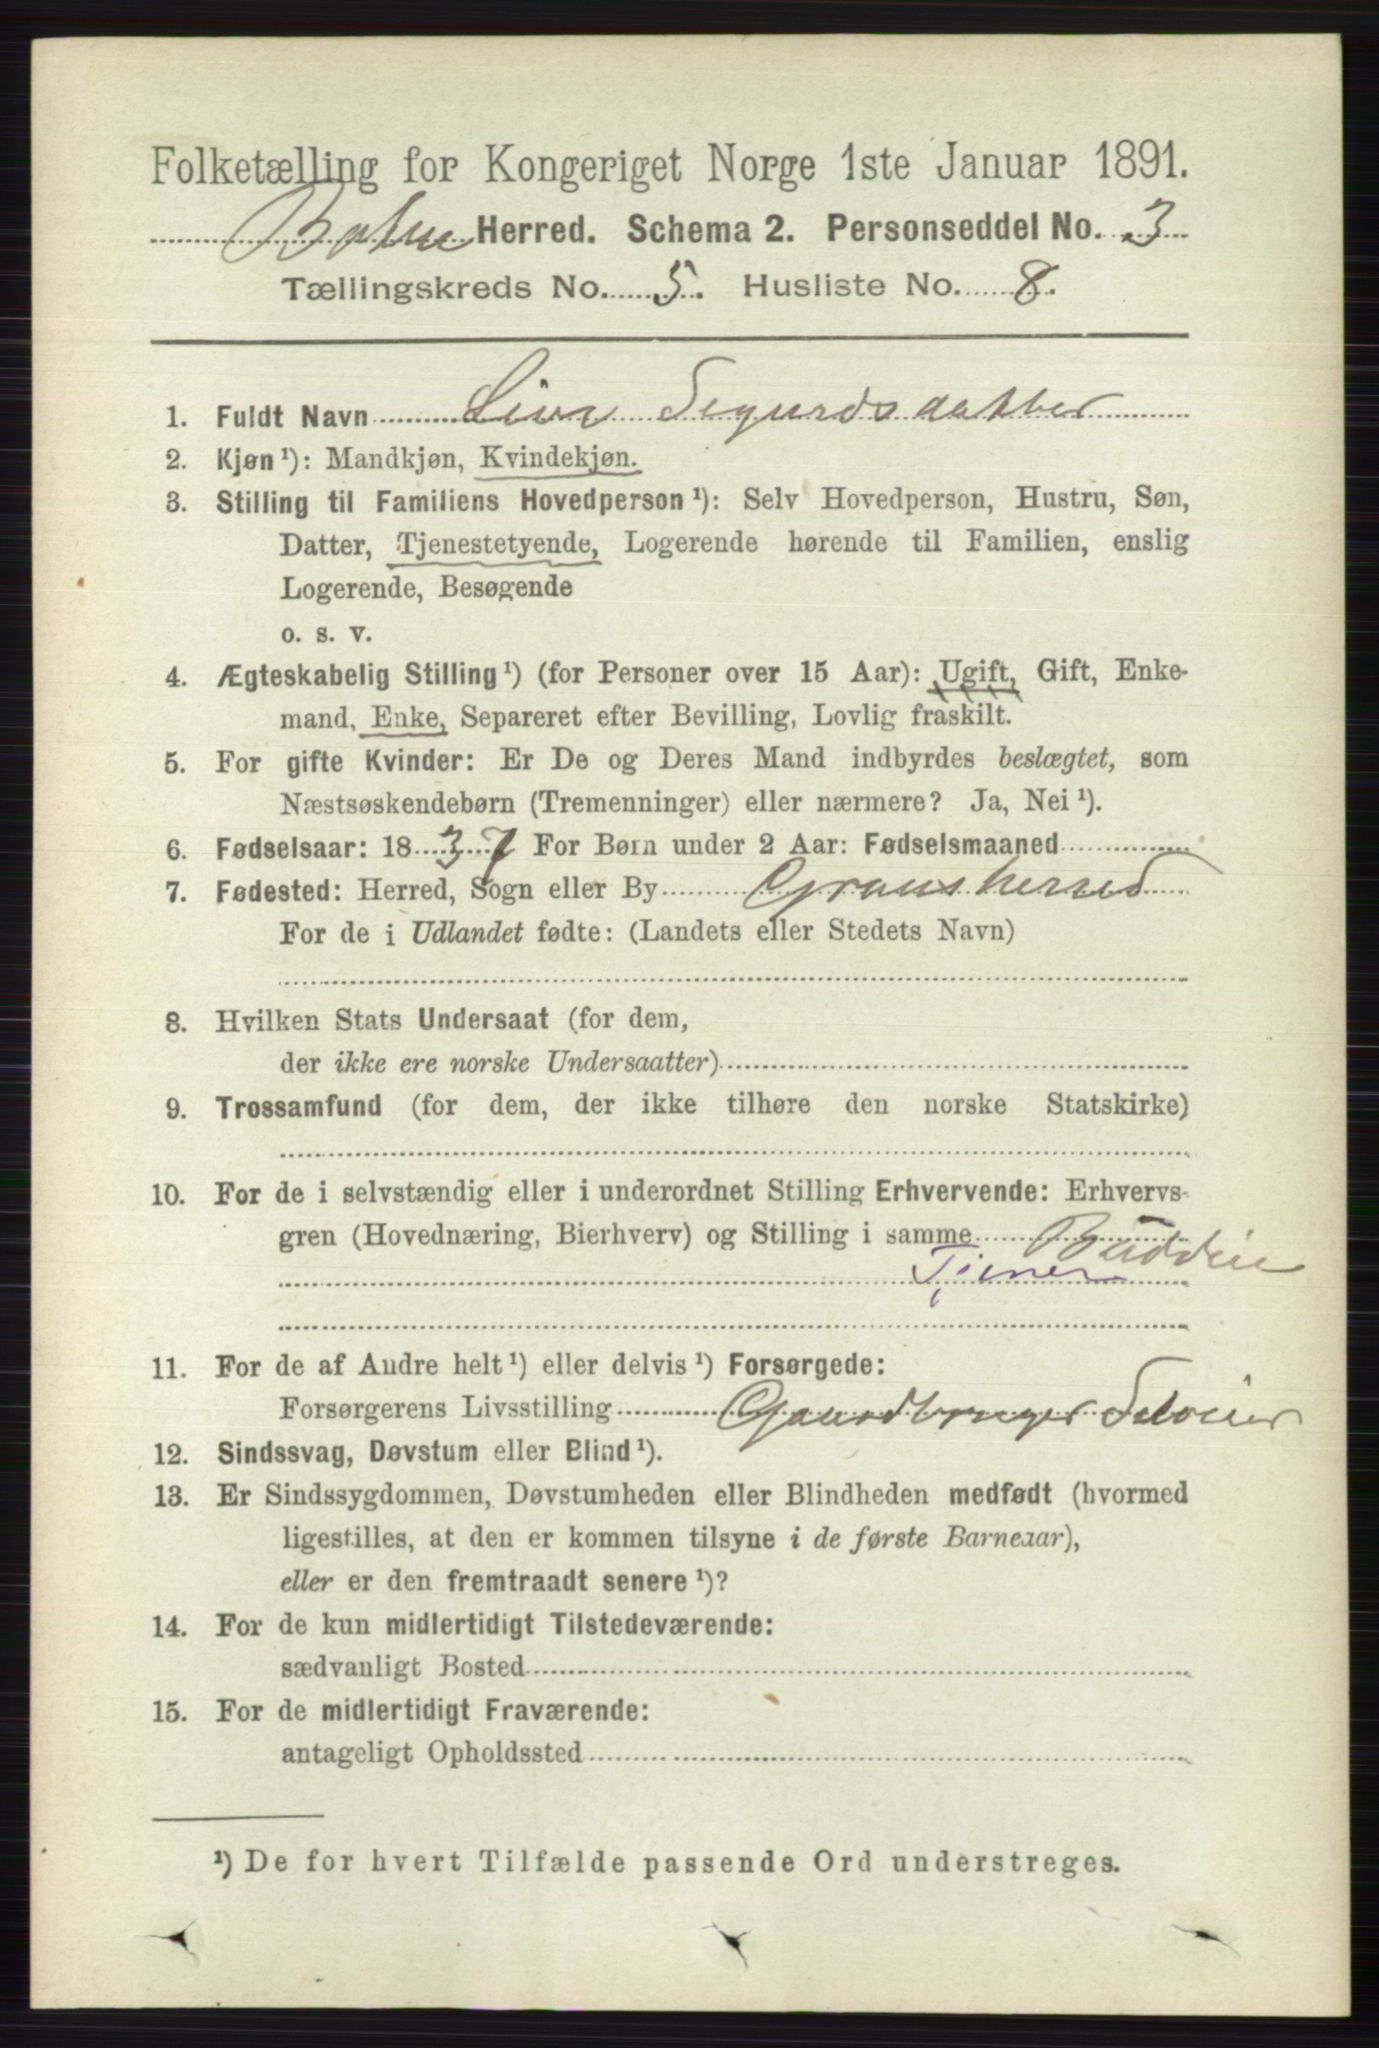 Folketælling for Kongeriget Norge 1ste Januar 1891.
Herred. Schema 2. Personseddel No. 3
Tællingskreds No. 5. Husliste No. 8.
1. Fuldt Navn Livr Segurdsdatter
2. Kjøn ¹): Mandkjøn, Kvindekjøn.
3. Stilling til Familiens Hovedperson ¹): Selv Hovedperson, Hustru, Søn,
Datter, Tjenestetyende, Logerende hørende til Familien, enslig
Logerende, Besøgende
o. s. v.
4. Ægteskabelig Stilling ¹) (for Personer over 15 Aar): Ugift, Gift, Enke-
mand, Enke, Separeret efter Bevilling, Lovlig fraskilt.
5. For gifte Kvinder: Er De og Deres Mand indbyrdes beslægtet, som
Næstsøskendebørn (Tremenninger) eller nærmere? Ja, Nei ¹).
6. Fødselsaar: 1837 For Børn under 2 Aar: Fødselsmaaned
7. Fødested: Herred, Sogn eller By Gransherred
For de i Udlandet fødte: (Landets eller Stedets Navn)
8. Hvilken Stats Undersaat (for dem,
der ikke ere norske Undersaatter)
9. Trossamfund (for dem, der ikke tilhøre den norske Statskirke)
10. For de i selvstændig eller i underordnet Stilling Erhvervende: Erhvervs-
gren (Hovednæring, Bierhverv) og Stilling i samme Buddeie
Tjener
11. For de af Andre helt ¹) eller delvis ¹) Forsørgede:
Forsørgerens Livsstilling Gaardbruger Seloeier
12. Sindssvag, Døvstum eller Blind ¹).
13. Er Sindssygdommen, Døvstumheden eller Blindheden medfødt (hvormed
ligestilles, at den er kommen tilsyne i de første Barneaar),
eller er den fremtraadt senere ¹)?
14. For de kun midlertidigt Tilstedeværende:
sædvanligt Bosted
15. For de midlertidigt Fraværende:
antageligt Opholdssted
¹) De for hvert Tilfælde passende Ord understreges.